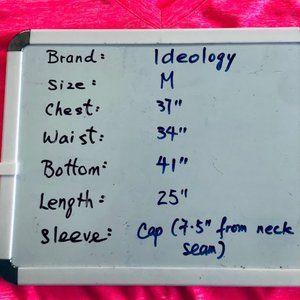 Brand: Ideology
Size: M
Chest: 37"
Waist: 34"
Bottom: 41"
Length: 25"
Sleeve: Cap (7.5" from neck
seam)